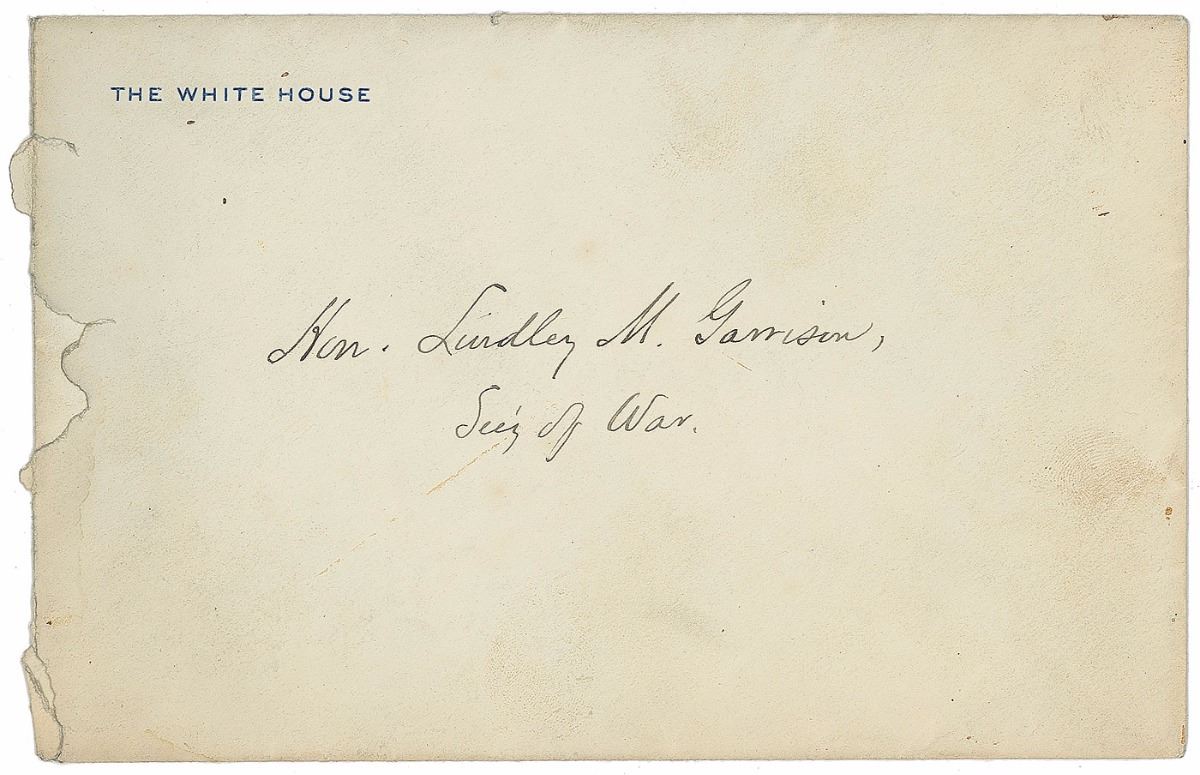 THE WHITE HOUSE
Hon. Lindley M. Garrison,
Sec'y of War.